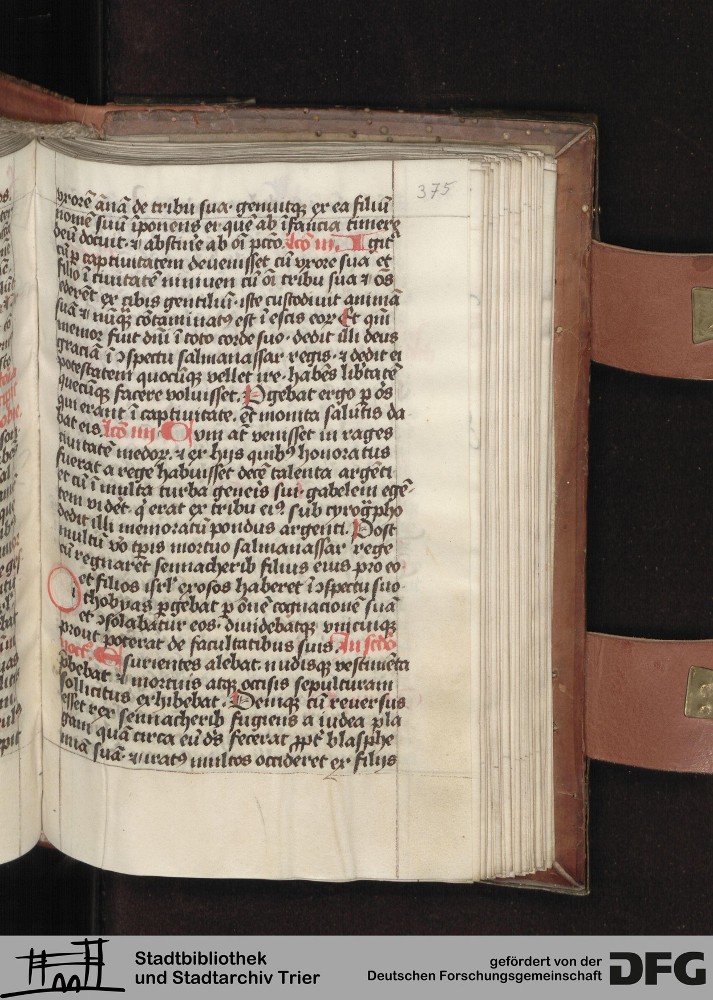 375
vxorē ānā de tribu sua · genuitqꝫ ex ea filiū
nomē suū īponens ei quē ab īfancia timere
deū docuit · ⁊ abstine ab oī pctō . lcō iii . Igit̄
cū ꝑ captiuitatem deuenisset cū vxore sua et
filio ī ciuitatē niniuen cū oī tribu sua ⁊ oēs
ederēt ex cibis gentiliū · iste custodiuit animā
suā ⁊ nūqꝫ cōtaminatꝰ est ī escis eoꝝ Et qm̄
memor fuit dn̄i ī toto corde suo · dedit illi deus
graciā ī ꝯspectu salmanassar regis · ⁊ dedit ei
potestatem quocūqꝫ vellet ire · habēs libtatē
quecūqꝫ facere voluisset . Pgebat ergo ꝑ oēs
qui erant ī captiuitate · et monita salutis da
bat eis . lcō iiii . Cum at̄ venisset in rages
ciuitatē medoꝝ · ⁊ ex hijs quibꝰ honoratus
fuerat a rege habuisset decē talenta argēti
et cū ī multa turba gen̄eis sui · gabelem egē-
tem vidēt · q̇ erat ex tribu eiꝰ sub cyrogͣpho
dedit illi memoratū pondus argenti . Post
multū vō tp̄is mortuo salmanassar rege
cū regnaret sennacherib filius eius pro eo ·
et filios isrl̄ exosos haberet ī ꝯspectu suo ·
thobyas ꝑgebat ꝑ om̄ē cognacionē suā
et ꝯsolabatur eos · diuidebatqꝫ vnicuiqꝫ
prout poterat de facultatibus suis . In scdō
noct̄ Esurientes alebat · nudisqꝫ vestimēta
p̄bebat ⁊ mortuis atqꝫ occisis sepulturam
sollicitus exhibebat . Deniqꝫ cū reuersus
esset rex sennacherib fugiens a iudea pla
gam quā circa eū dꝰs fecerat ꝓpt̄ blasphe
miā suā · ⁊ iratꝰ multos occideret ex filijs
Stadtbibliothek
und Stadtarchiv Trier
gefördert von der
Deutschen Forschungsgemeinschaft
DFG